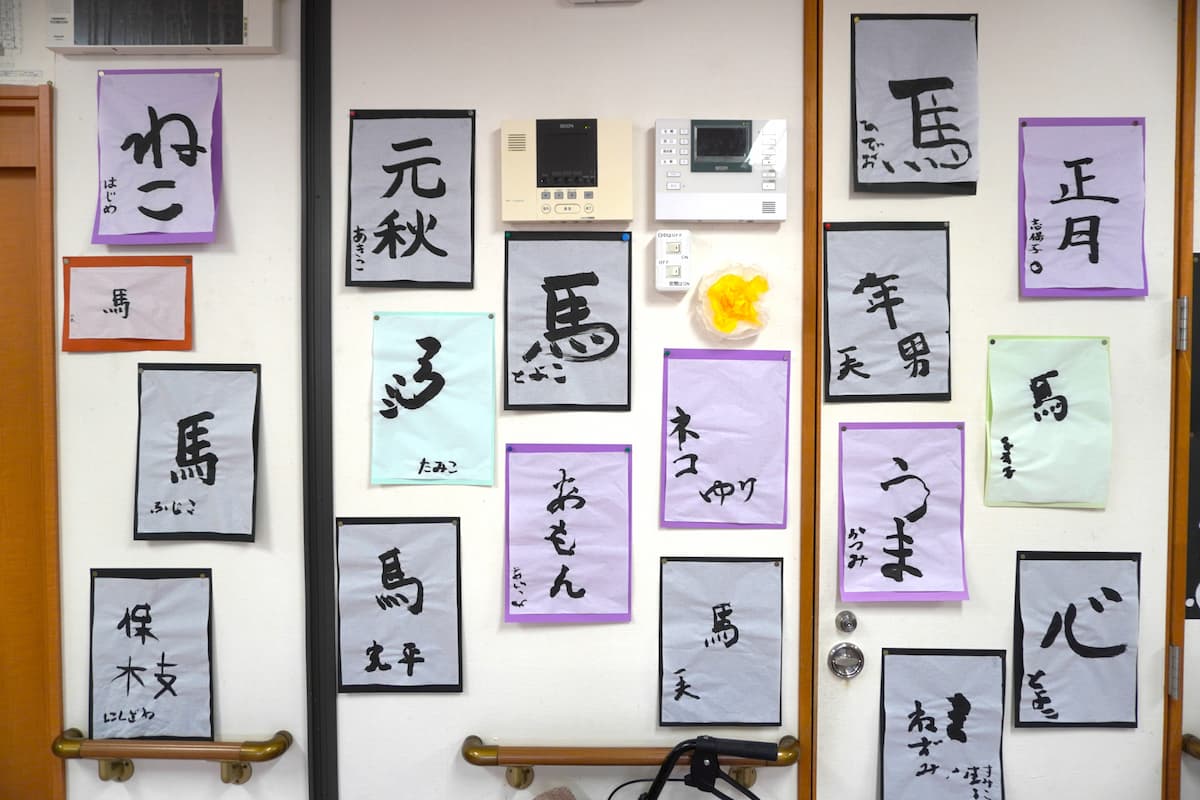 ねこ
はじめ
馬
馬
ふじこ
保
木支
にしざわ
元
秋
あきっこ
たみこ
馬
平
馬
とよこ
あもん
ネコ
ゆり
馬
天
馬
ひでお
年
男
天
うま
かつみ
ねずみ
正
月
志保子
馬
心
とよこ